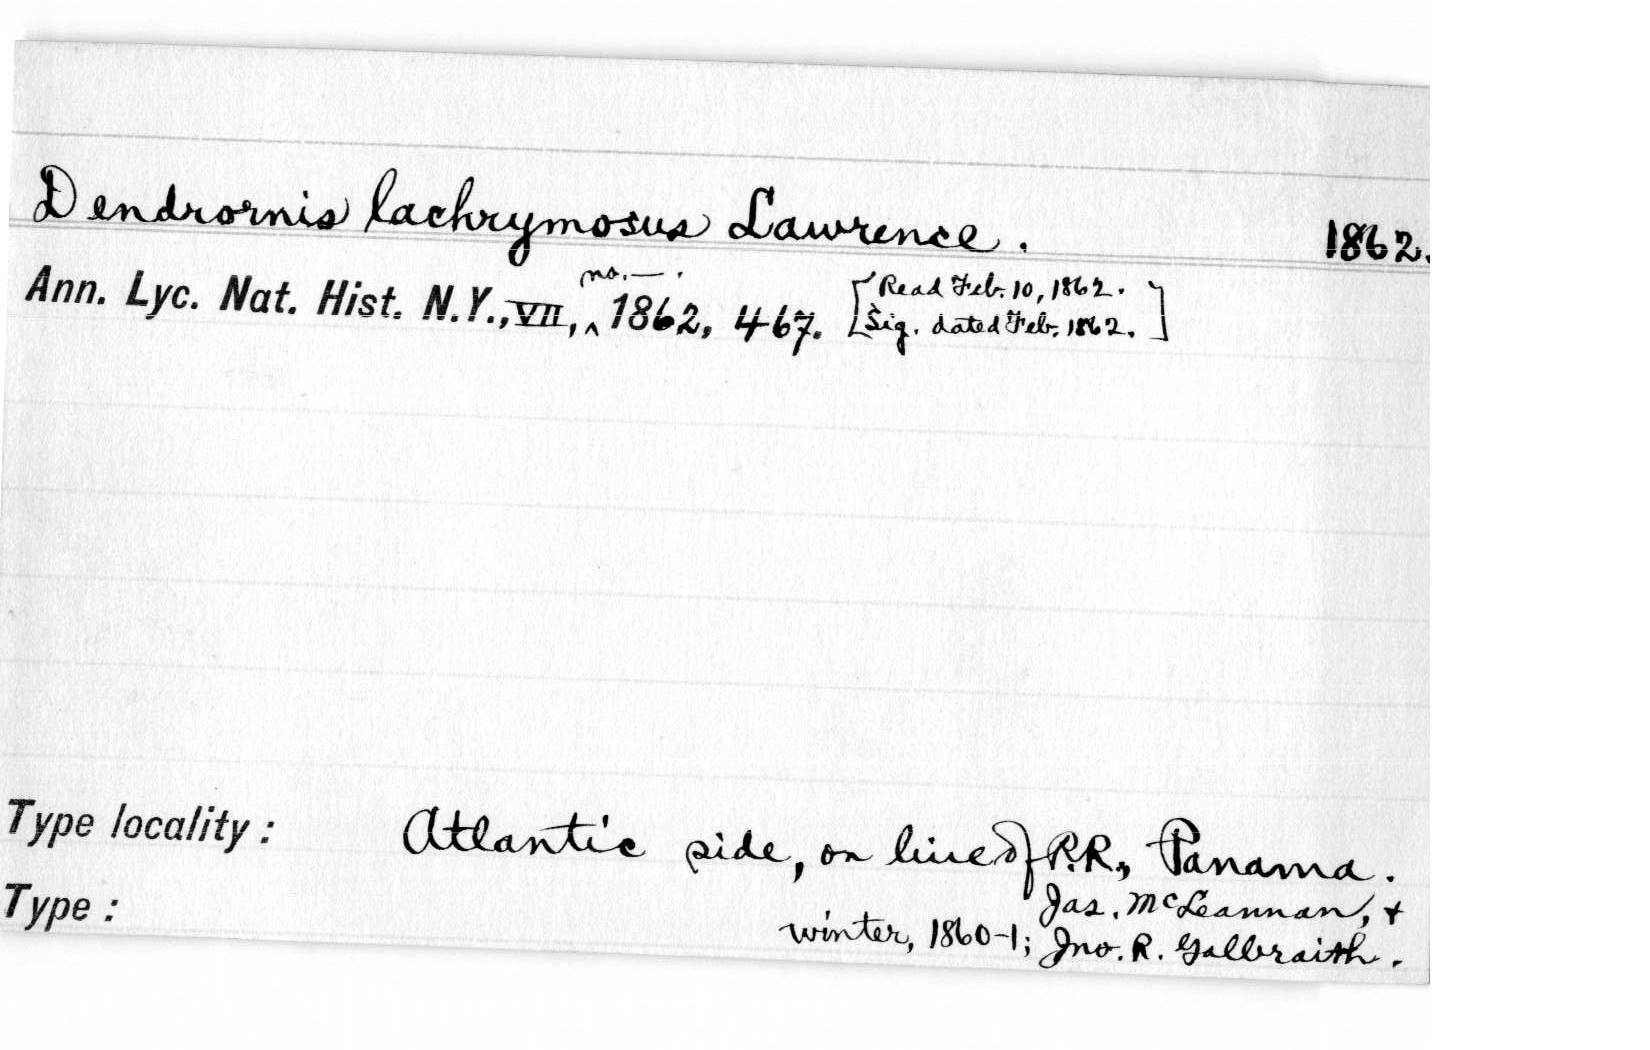 Dendrornis lachrymosus Lawrence. 1862.
Ann. Lyc. Nat. Hist. N.Y., VII, ^ no. —. 1862, 467. [Read Feb. 10, 1862.
Sig. dated Feb. 1862.]
Type locality: Atlantic side, on line of R.R., Panama.
Type: Jas. McLeannan, +
winter, 1860-1; Jno. R. Galbraith.